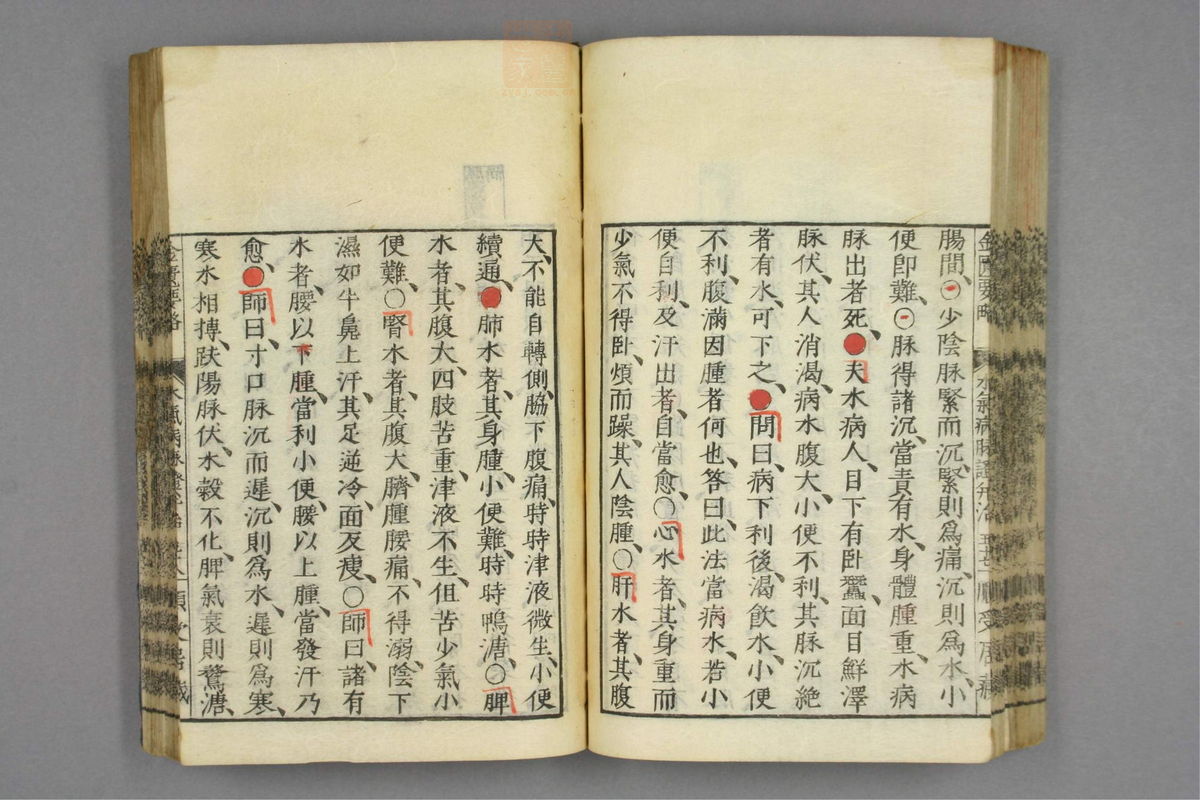 腸間、〇少陰脉緊而沉、緊則爲痛、沉則爲水、小
便卽難、〇脉得諸沉、當責有水、身體腫重、水病
脉出者死、●夫水病人、目下有臥蠶、面目鮮澤
脉伏、其人消渴、病水腹大、小便不利、其脉沉絕
者、有水、可下之、●問曰、病下利後、渴飲水、小便
不利、腹滿因腫者何也、答曰、此法當病水、若小
便自利、及汗出者、自當愈、〇心水者、其身重而
少氣不得臥、煩而躁、其人陰腫、〇肝水者、其腹
大、不能自轉側、脇下腹痛、時時津液微生、小便
續通、●肺水者、其身腫、小便難、時時鴨溏、〇脾
水者、其腹大、四肢苦重、津液不生、但苦少氣、小
便難、〇腎水者、其腹大、臍腫腰痛、不得溺、陰下
濕如牛鼻上汗、其足逆冷、面反瘦、〇師曰、諸有
水者、腰以下腫、當利小便、腰以上腫、當發汗乃
愈、●師曰、寸口脉沉而遲、沉則爲水、遲則爲寒、
寒水相搏、趺陽脉伏、水穀不化、脾氣衰則鶩溏、